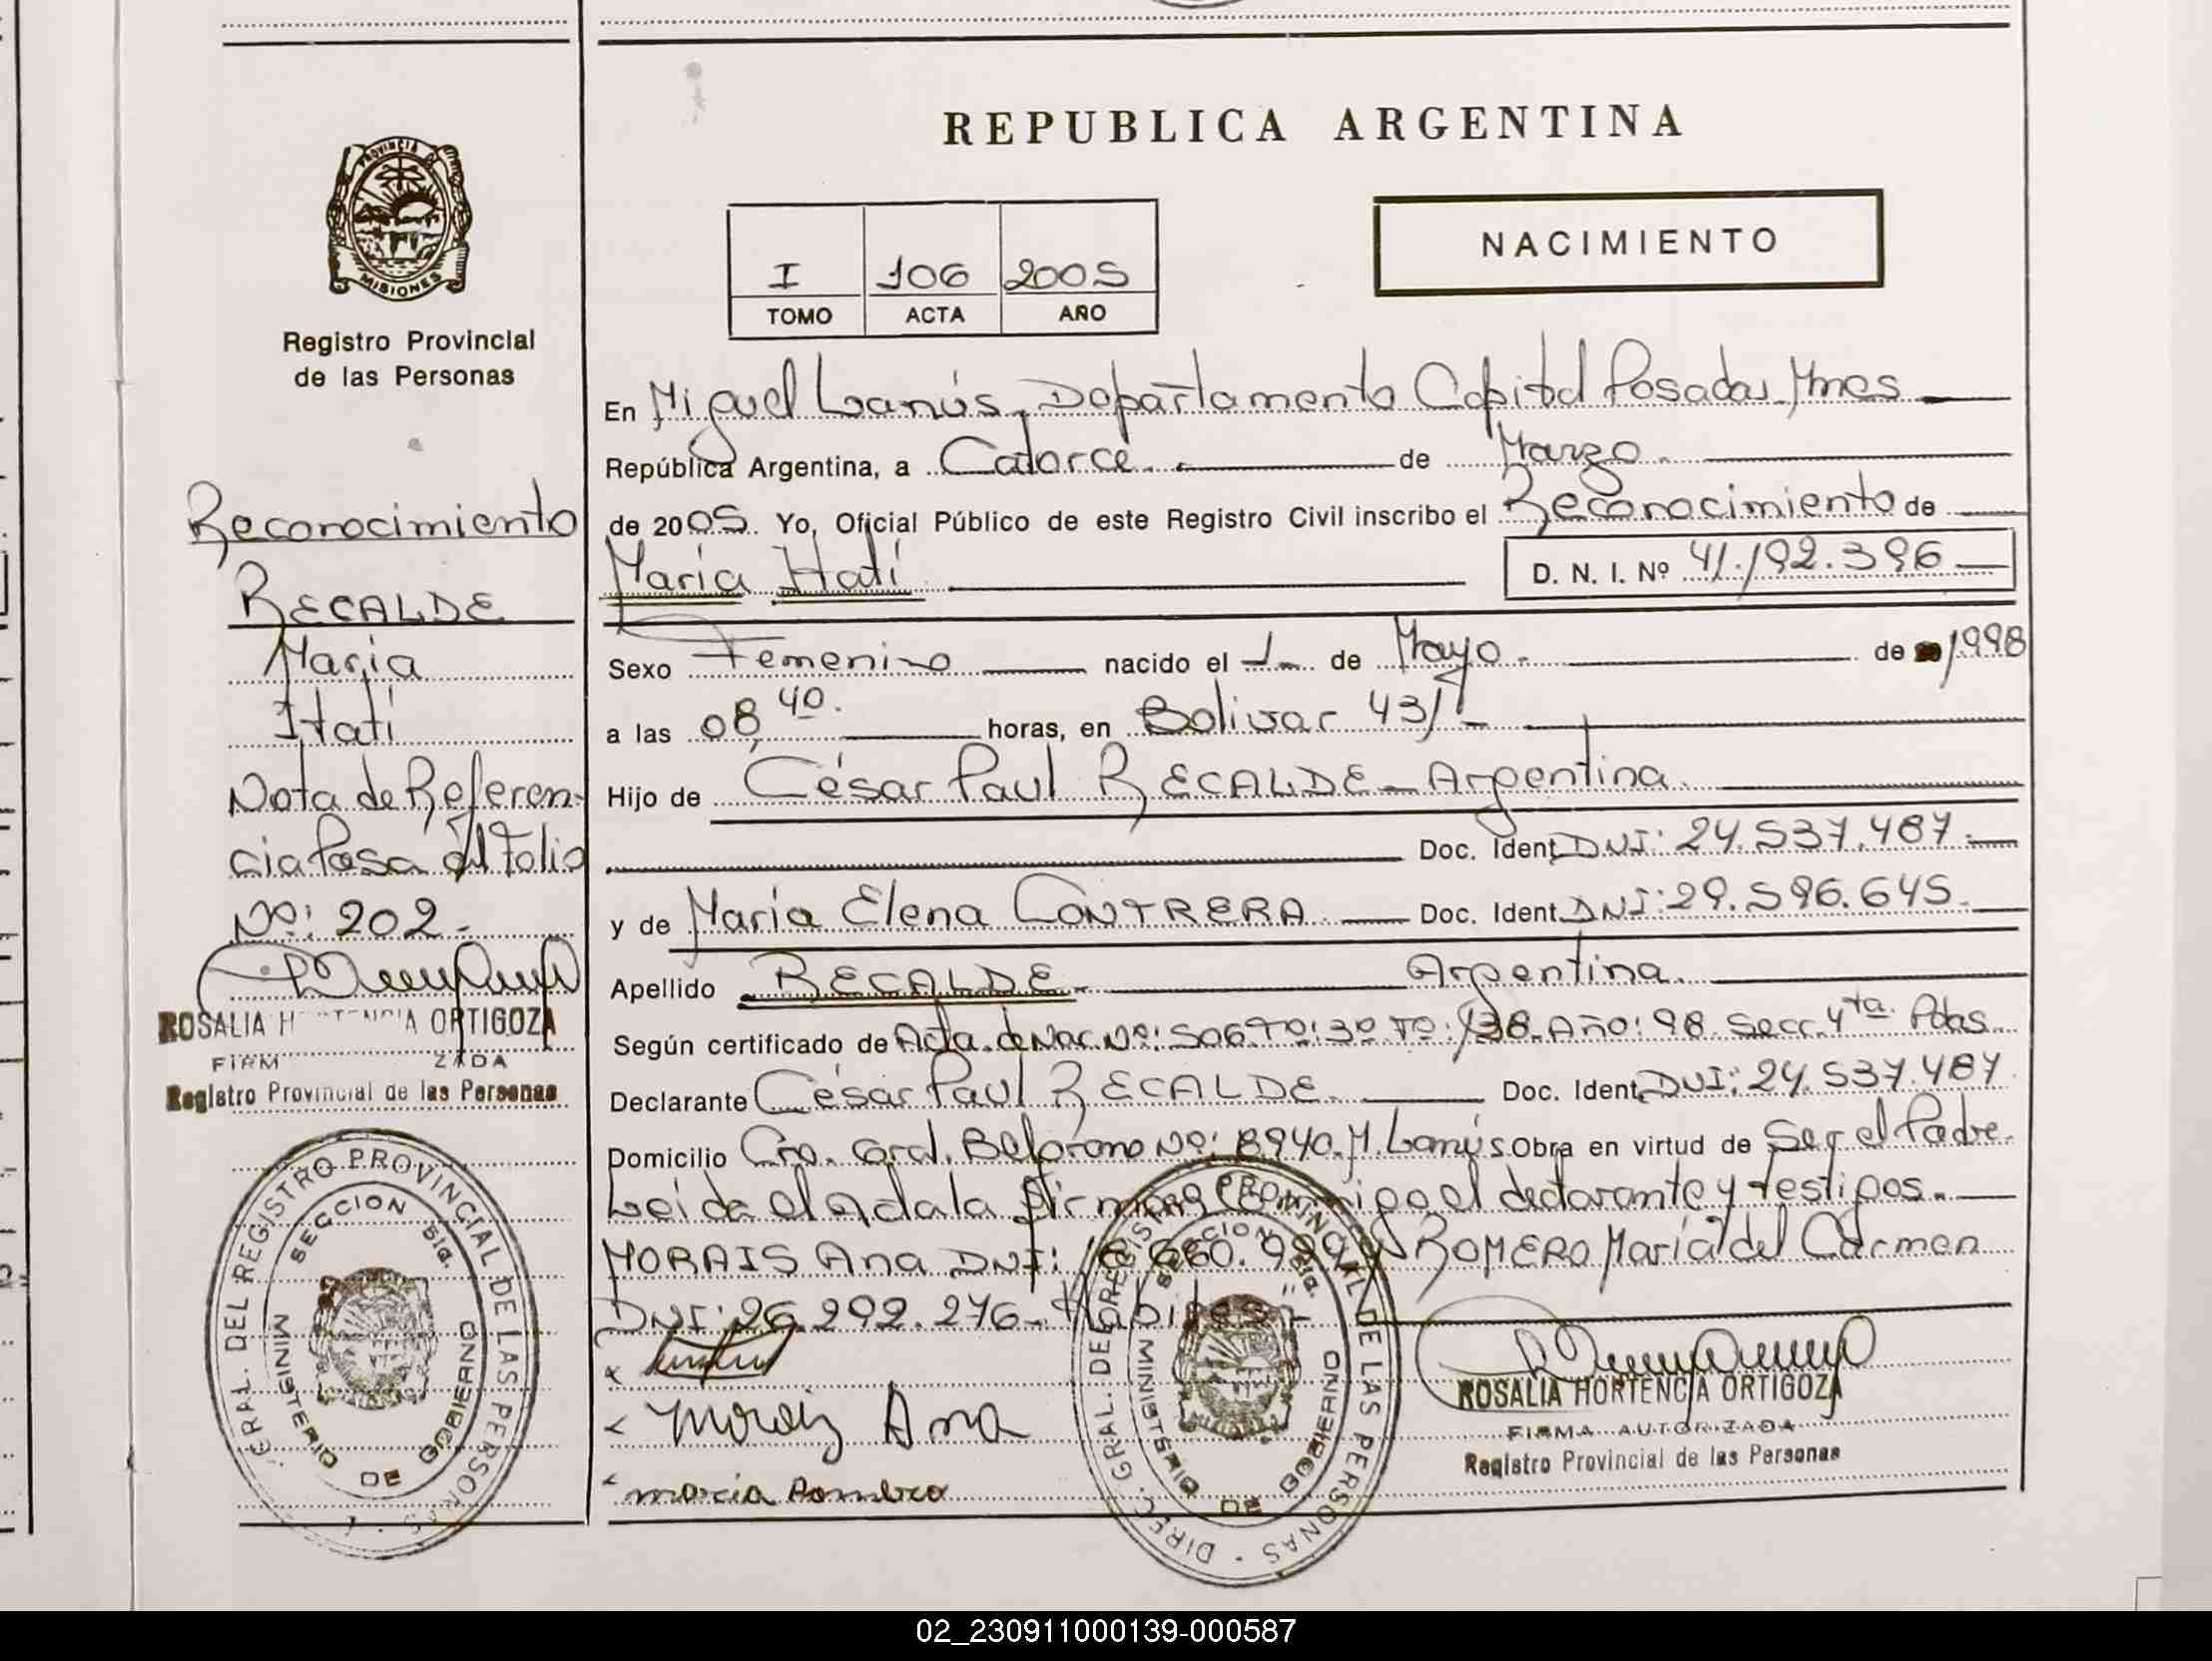 REPUBLICA ARGENTINA
PROVINCIA D MISIONES
Registro Provincial
de las Personas
I 106 2005
TOMO ACTA AÑO
NACIMIENTO
Reconocimiento
RECALDE
María
Itatí
Nota de Referen-
cia Pasa al Folio
Nº: 202.-
ROSALIA H ORTIGOZA
FIRM ZADA
Registro Provincial de las Personas
GRAL. DEL REGISTRO PROVINCIAL DE LAS PERSONAS
SECCION 5ta.
MINISTERIO DE GOBIERNO
En Miguel Lanús, Departamento Capital Posadas. Mnes
República Argentina, a Catorce. de Marzo.
de 2005. Yo, Oficial Público de este Registro Civil inscribo el Reconocimiento de
María Itatí D. N. I. Nº 41.192.396
Sexo Femenino nacido el 1 de Mayo. de 1998
a las 08,40. horas, en Bolivar 431
Hijo de César Paul RECALDE - Argentina.
Doc. Ident. DNI: 24.537.487.-
y de María Elena CONTRERA Doc. Ident. DNI: 29.596.645.
Apellido RECALDE. Argentina.
Según certificado de Acta de Nac. Nº: 506 Tº: 3º Fº: 138. Año: 98. Secc. 4ta. Pdas.
Declarante César Paul RECALDE. Doc. Ident. DNI: 24.537.487
Domicilio Cro. Gral. Belgrano Nº: 8940. M. Lanús. Obra en virtud de Ser el Padre.
Leida el Acta la firman Conmigo el declarante y testigos.
MORAIS Ana DNI: 660. ROMERO María del Carmen
DNI: 26.292.276. Habiles
Ana
maria
ROSALIA HORTENCIA ORTIGOZA
FIRMA AUTORIZADA
Registro Provincial de las Personas
DIREC. GRAL. DEL REGISTRO PROVINCIAL DE LAS PERSONAS
SECCION 5ta.
MINISTERIO DE GOBIERNO
02_230911000139-000587